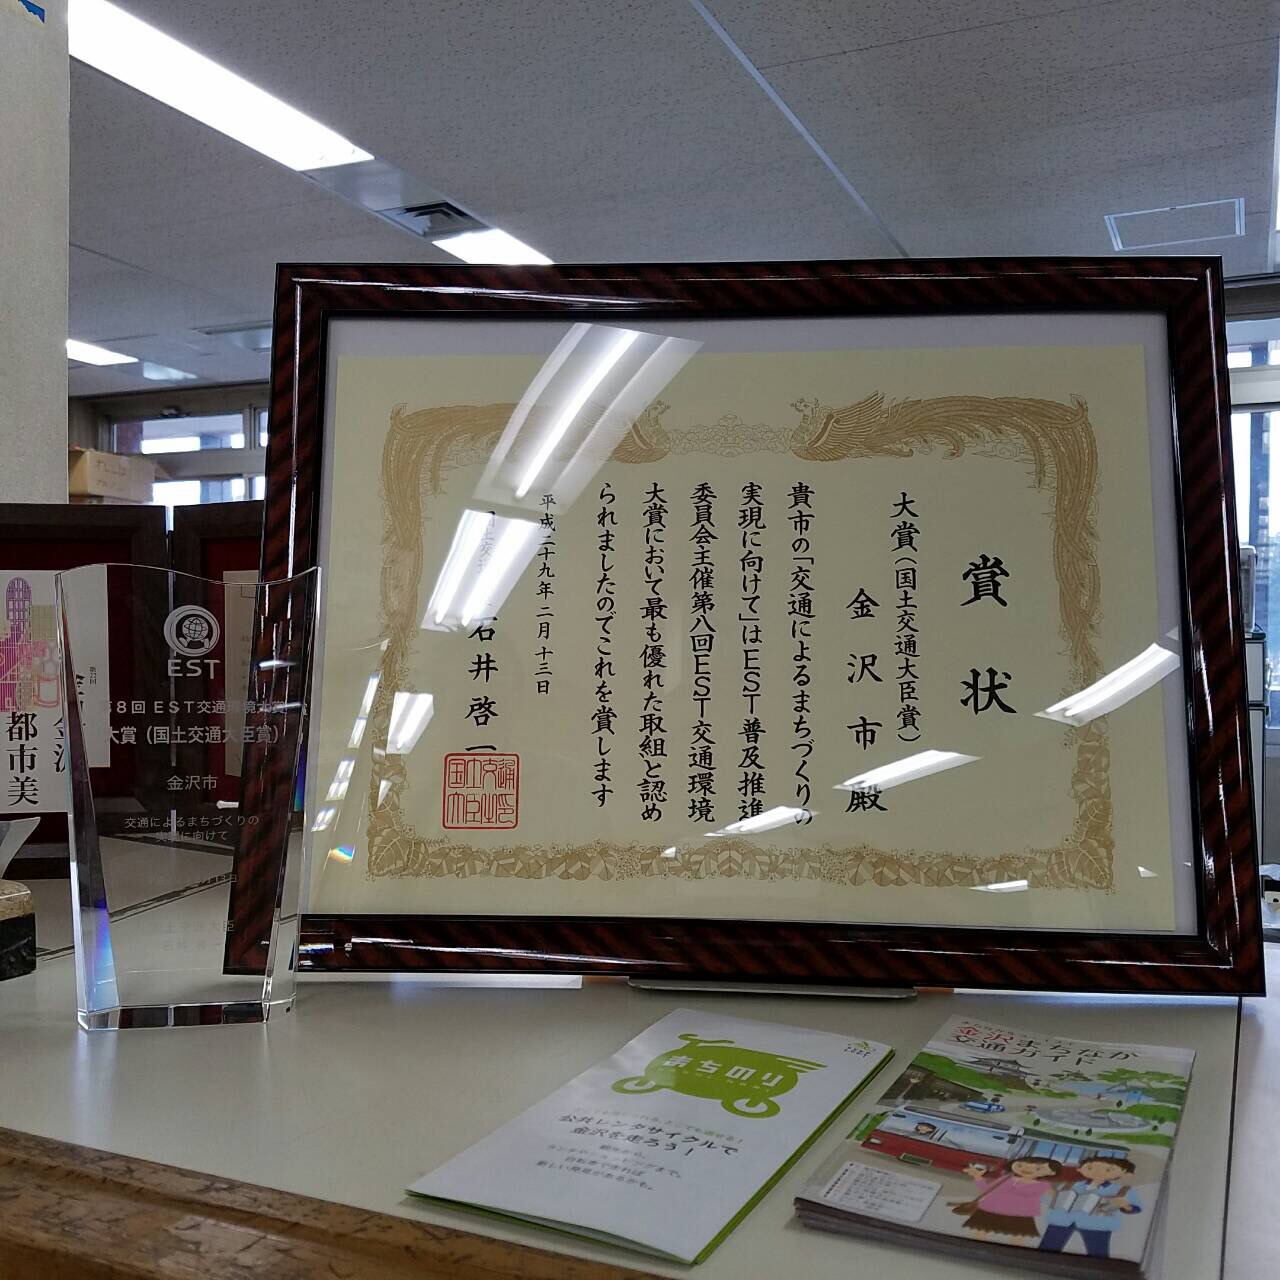 賞状
大賞（国土交通大臣賞）
金沢市殿
貴市の「交通によるまちづくりの
実現に向けて」はEST普及推進
委員会主催第八回EST交通環境
大賞において最も優れた取組と認め
られましたのでこれを賞します
平成二十九年二月十三日
石井啓一
国土交通大臣印
EST
第8回 EST交通環境大賞
大賞（国土交通大臣賞）
金沢市
交通によるまちづくりの
実現に向けて
都市美
まちのり
公共レンタサイクルで
金沢を走ろう！
金沢まちなか
交通ガイド